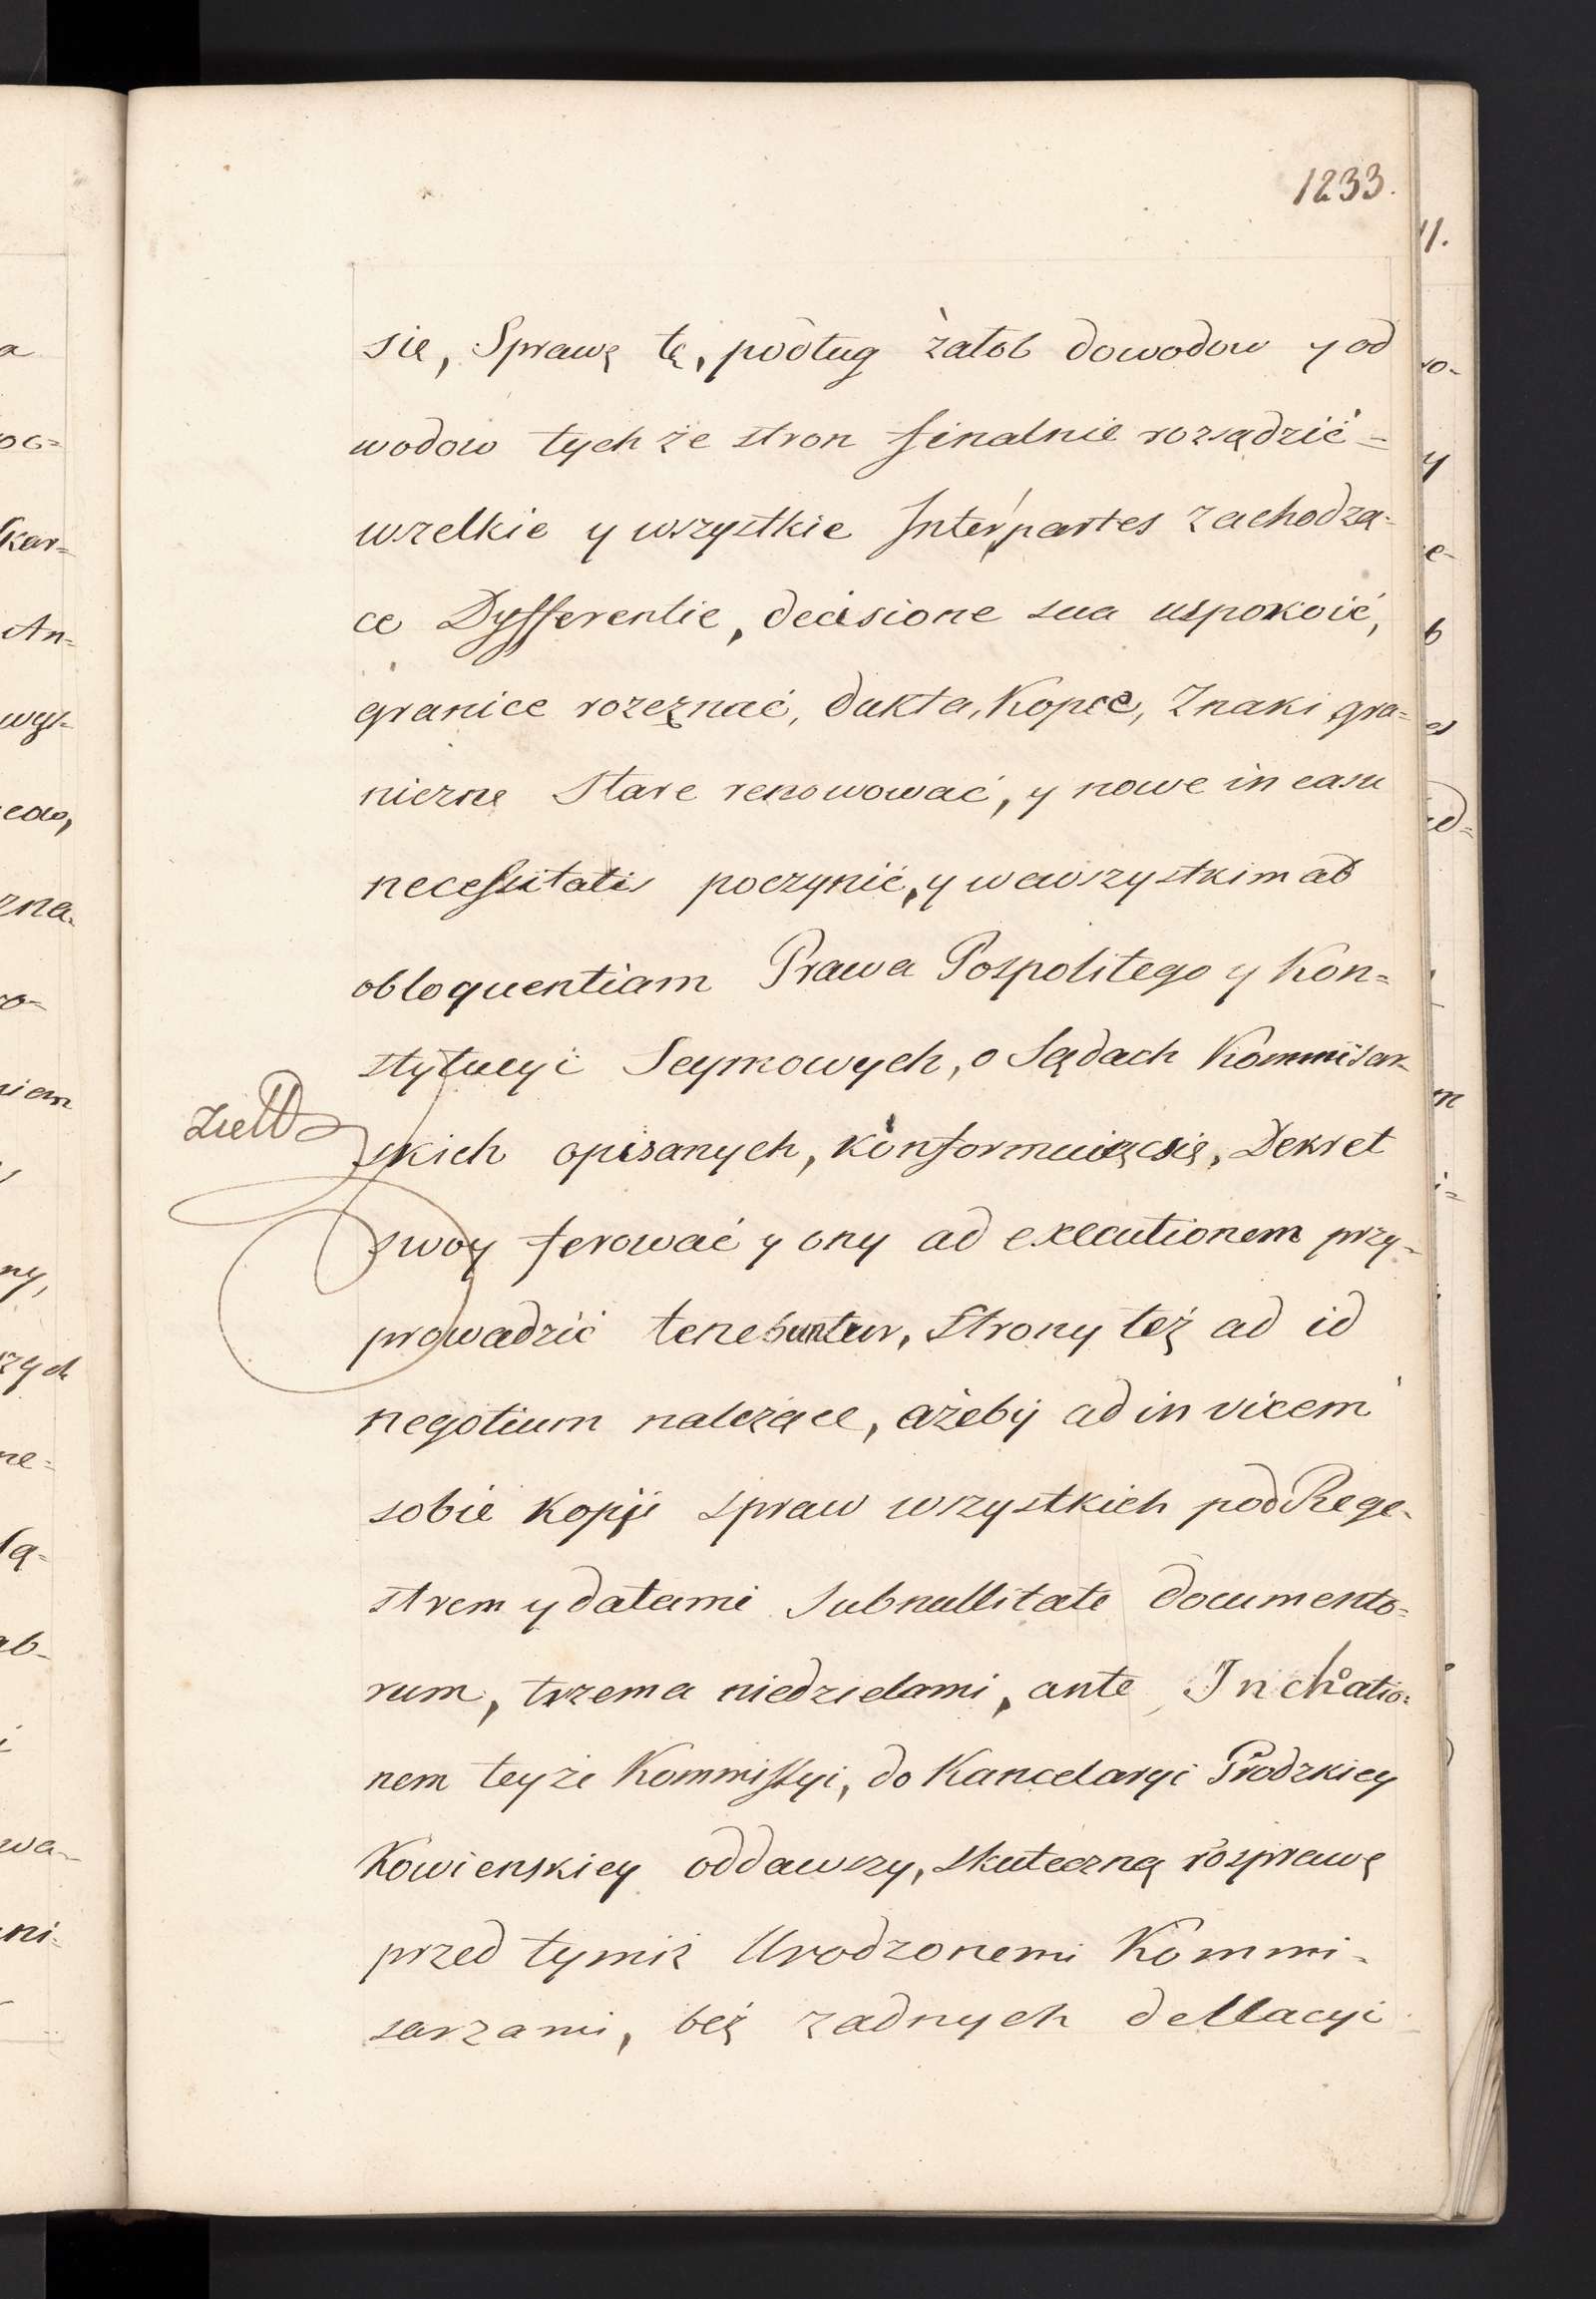 1233.
sie, Sprawę tę, podług żałob dowodow y od
wodow tych że stron finalnie rozsądzić =
wszelkie y wszystkie Inter partes zachodzą-
ce Dyfferentie, decisione sua uspokoić,
granice rozeznać, dukta, Kopce, Znaki gra=
niczne Stare renowować, y nowe in casu
necessitatis poczynić, y wewszystkim ad
obloquentiam Prawa Pospolitego y Kon=
stytucyi Seymowych, o Sądach Kommisar-
skich opisanych, konformuiąc się, Dekret
swoy ferować y ony ad executionem przy-
prowadzić tenebuntur, Strony też ad id
negotium należące, ażeby ad in vicem
sobie Kopij spraw wszystkich pod Rege-
strem y datami sub nullitate documento=
rum, trzema niedzielami, ante Inchoatio=
nem teyże Kommissyi, do Kancelaryi Grodzkiey
Kowienskiey oddawszy, skuteczną rozprawę
przed tymiż Urodzonemi Kommi-
sarzami, beż żadnych dellacyi